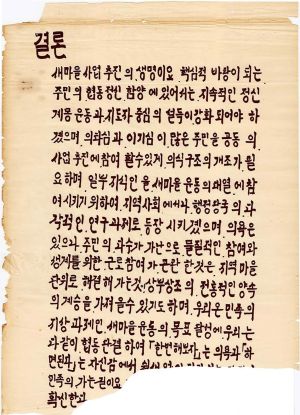 결론
새마을 사업 추진의 생명이요 핵심적 바탕이 되는
주민의 협동정신 함양에 있어서는 지속적인 정신
계몽 운동과 지도자 중심의 활동이 강화 되어야 하
겠으며, 의화심과 이기심이 많은 주민을 공동 의
사업 추진에 참여 할수있게 의식구조의 개조가 필
요하며, 일부 지식인을 새마을 운동의 대열에 참
여 시키기 위하여, 지역사회에서나, 행정당국의 과
학적인 연구과제로 등장 시키겠으며 의욕은
있으나 주민의 과수가 가난으로 물질적인 참여와
생계를 위한 근로참여가 곤란한 것은 지역마을
단위로 해결해 가는것이 상부상조의 전통적인 양속
의 계승을 가져올수 있기도 하며, 우리은 민족의
지상과제인 새마을 운동의 목표 달성에 우리는
다같이 협동 단결 하여 「한번해보자」는 의욕과 「하
면된다」는 자신감에서
민족의 가는길이요
확신하고